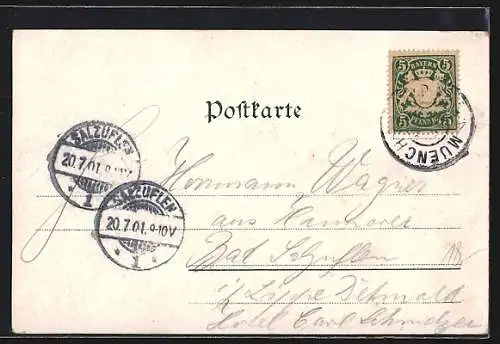 5 BAYERN 5
5 PFENNIG 5
Postkarte
MUENCH
SALZUFLEN
20.7.01.9-10V
* 1 *
SALZUFLEN
20.7.01.9-10V
* 1 *
Herrmann Wagner
aus Hannover
Bad Salzuflen
i/ Lippe Detmold
Hotel Carl